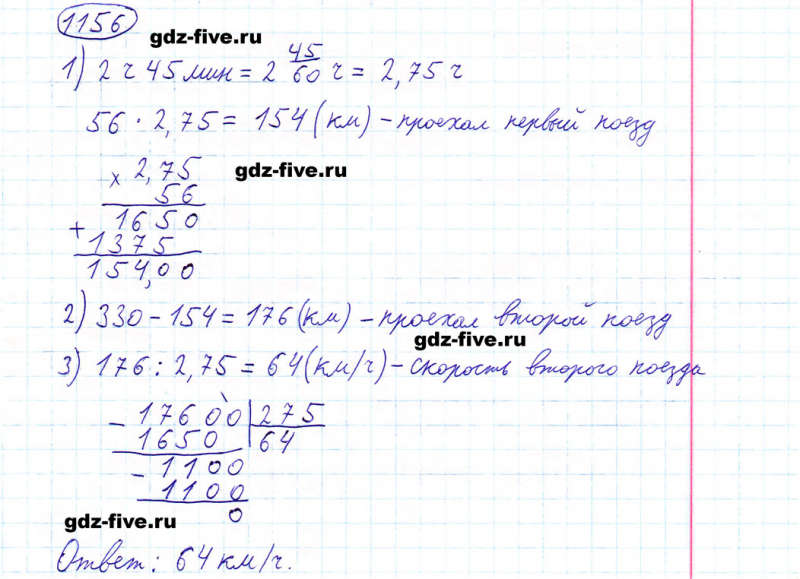 1156
gdz-five.ru
1) 2 ч 45 мин = 2 45/60 ч = 2,75 ч
56 · 2,75 = 154 (км) – проехал первый поезд
× 2,75
gdz-five.ru
56
+ 1650
1375
154,00
2) 330 – 154 = 176 (км) – проехал второй поезд
gdz-five.ru
3) 176 : 2,75 = 64 (км/ч) – скорость второго поезда
– 17600 | 275
1650 | 64
– 1100
1100
0
gdz-five.ru
Ответ: 64 км/ч.